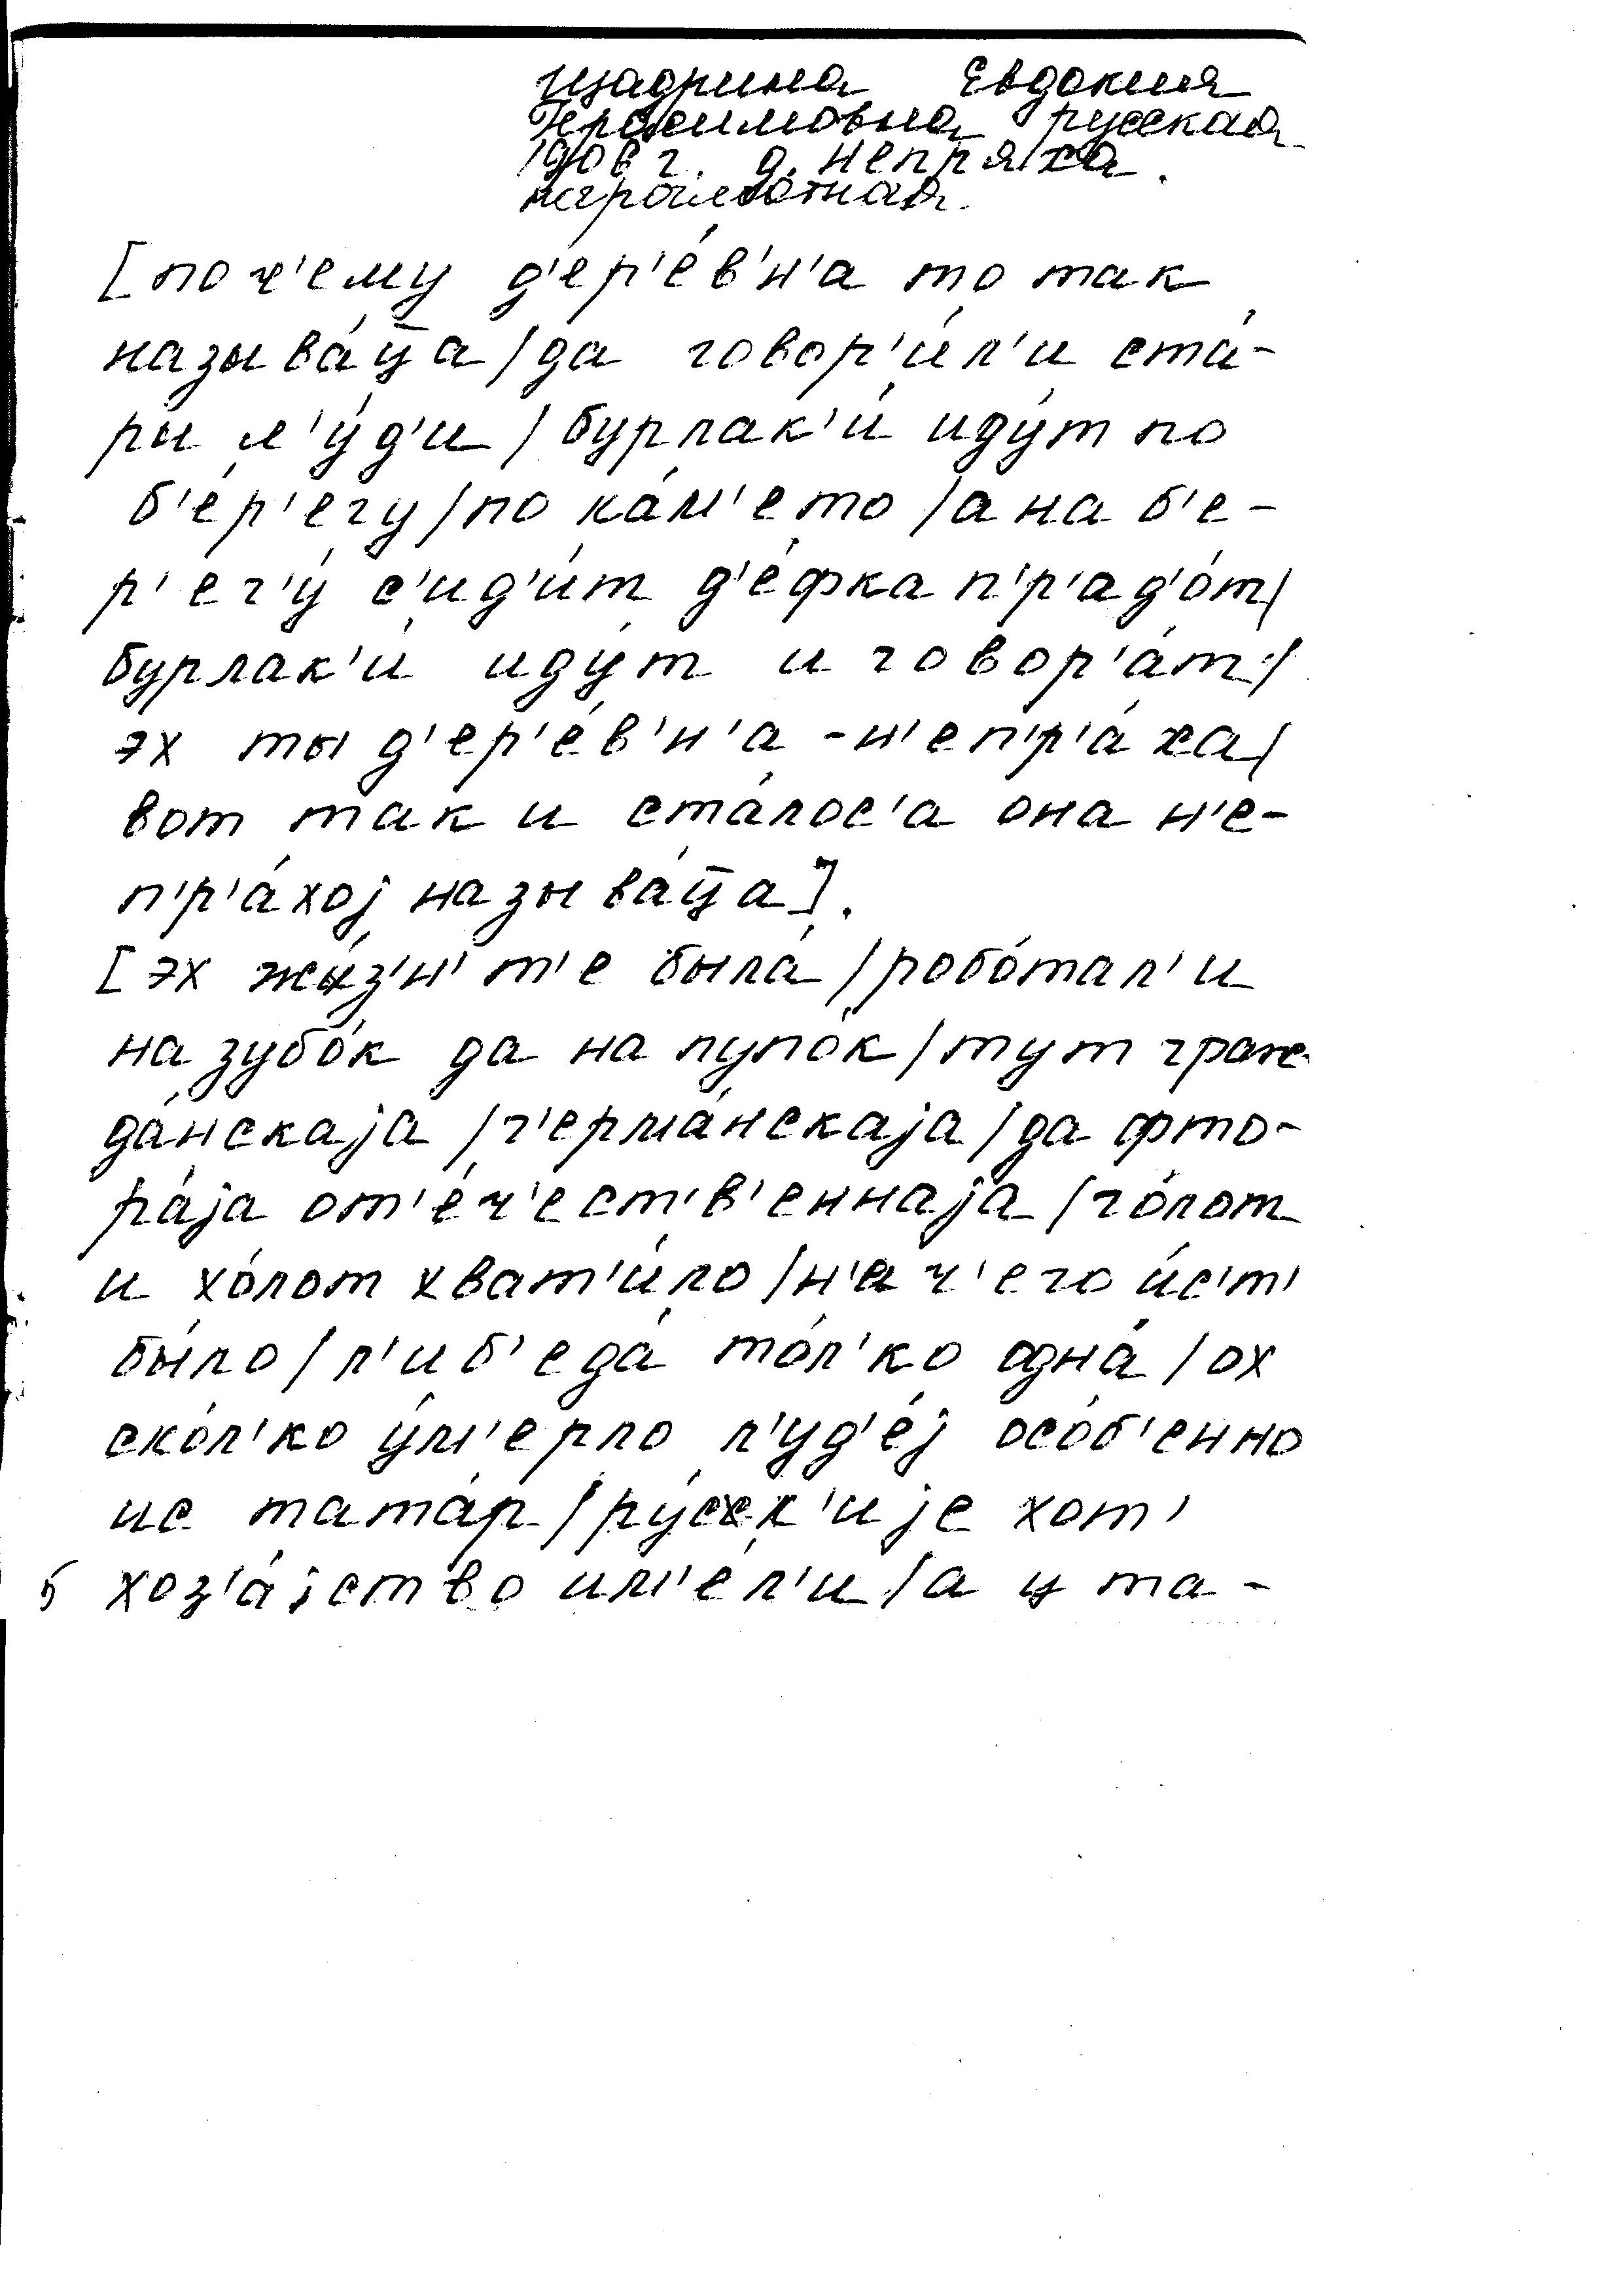 Щадрина Евдокия
Герасимовна русская
1906 г. д. Непряха.
неграмотная.
[поч'ему д'ер'е́в'н'а то так
называ́ц̅а / да говор'и́л'и ста́-
ры л'у́д'и / бурлак'и́ иду́т по
б'е́р'егу / по ка́м'ето / а на б'е-
р'ег'у́ с'ид'и́т д'е́фка п'р'ад'о́т /
бурлак'и́ иду́т и говор'а́т /
эх ты д'ер'е́в'н'а - н'еп'р'а́ха /
вот так и ста́лос'а она н'е-
п'р'а́хој называ́ц̅а].
[эх жы́з'н' т'е была́ / робо́тал'и
на зубо́к да на пупо́к / тут граж-
да́нскаја / г'ерма́нскаја / да фто-
ра́ја от'е́ч'ест'в'еннаја / го́лот
и хо́лот хват'и́ло / н'а ч'его и́с'т'
бы́ло / л'иб'еда́ то́л'ко одна́ / ох
ско́л'ко у́м'ерло л'уд'е́ј осо́б'енно
ис тата́р / ру́сск'ије хот'
5 хоз'а́јство им'е́л'и / а у та-